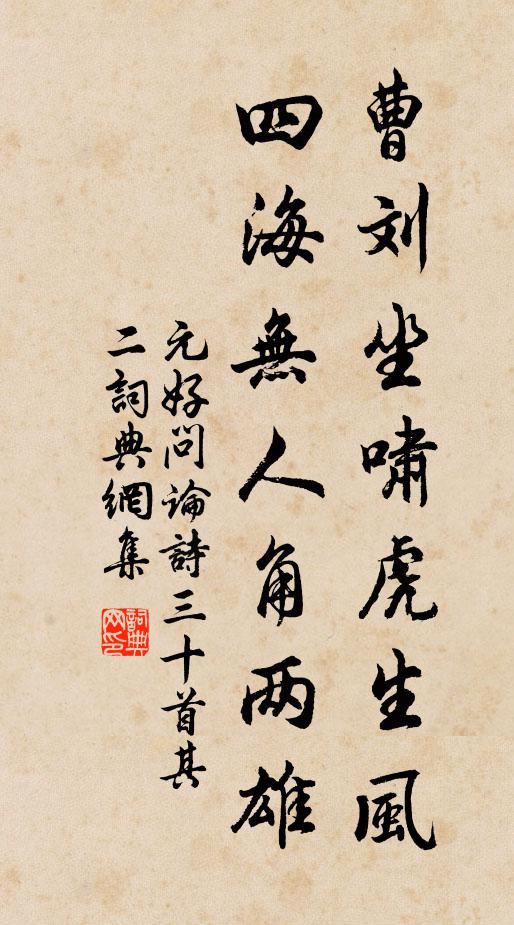 曹刘坐啸虎生風
四海無人角两雄
元好问論詩三十首其
二詞典網集
詞典网印